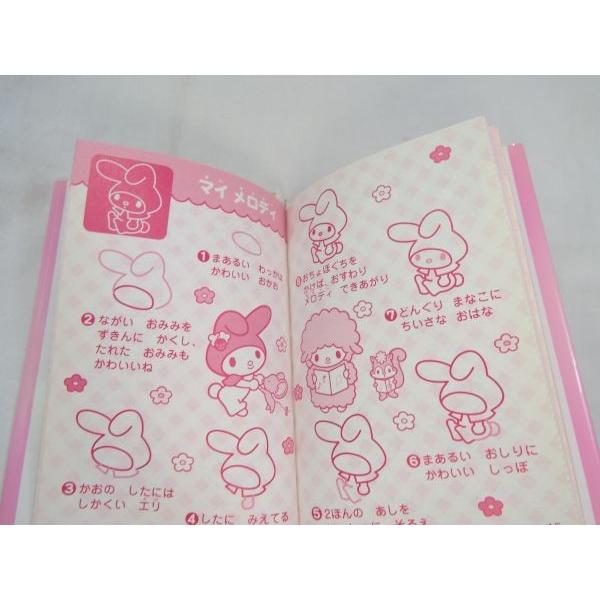 マイメロディ
❶まあるい わっかは
かわいい おかお
❷ながい おみみを
ずきんに かくし、
たれた おみみも
かわいいね
❸かおの したには
しかくい エリ
❹したに みえてる
❺2ほんの あしを
そろえ
❻まあるい おしりに
かわいい しっぽ
❼どんぐり まなこに
ちいさな おはな
おちょぼぐちを
かけば、おすわり
メロディ できあがり